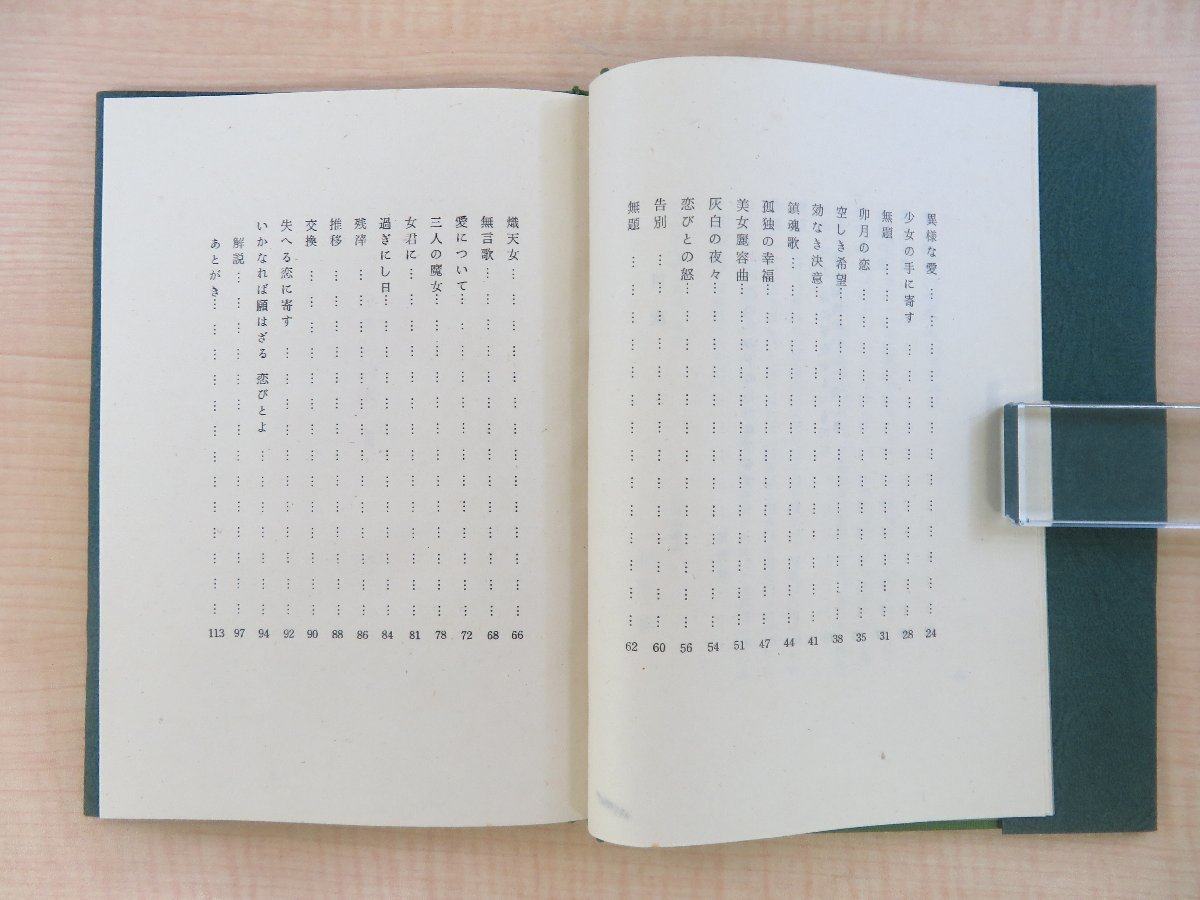 異様な愛…………………………………………24
少女の手に寄す…………………………………………28
無題…………………………………………31
卯月の恋…………………………………………35
空しき希望…………………………………………38
効なき決意…………………………………………41
鎮魂歌…………………………………………44
孤独の幸福…………………………………………47
美女麗容曲…………………………………………51
灰白の夜々…………………………………………54
恋びとの怒…………………………………………56
告別…………………………………………60
無題…………………………………………62
熾天女…………………………………………66
無言歌…………………………………………68
愛について…………………………………………72
三人の魔女…………………………………………78
女君に…………………………………………81
過ぎにし日…………………………………………84
残滓…………………………………………86
推移…………………………………………88
交換…………………………………………90
失へる恋に寄す…………………………………………92
いかなれば願はざる 恋びとよ……………………94
解説…………………………………………97
あとがき…………………………………………113